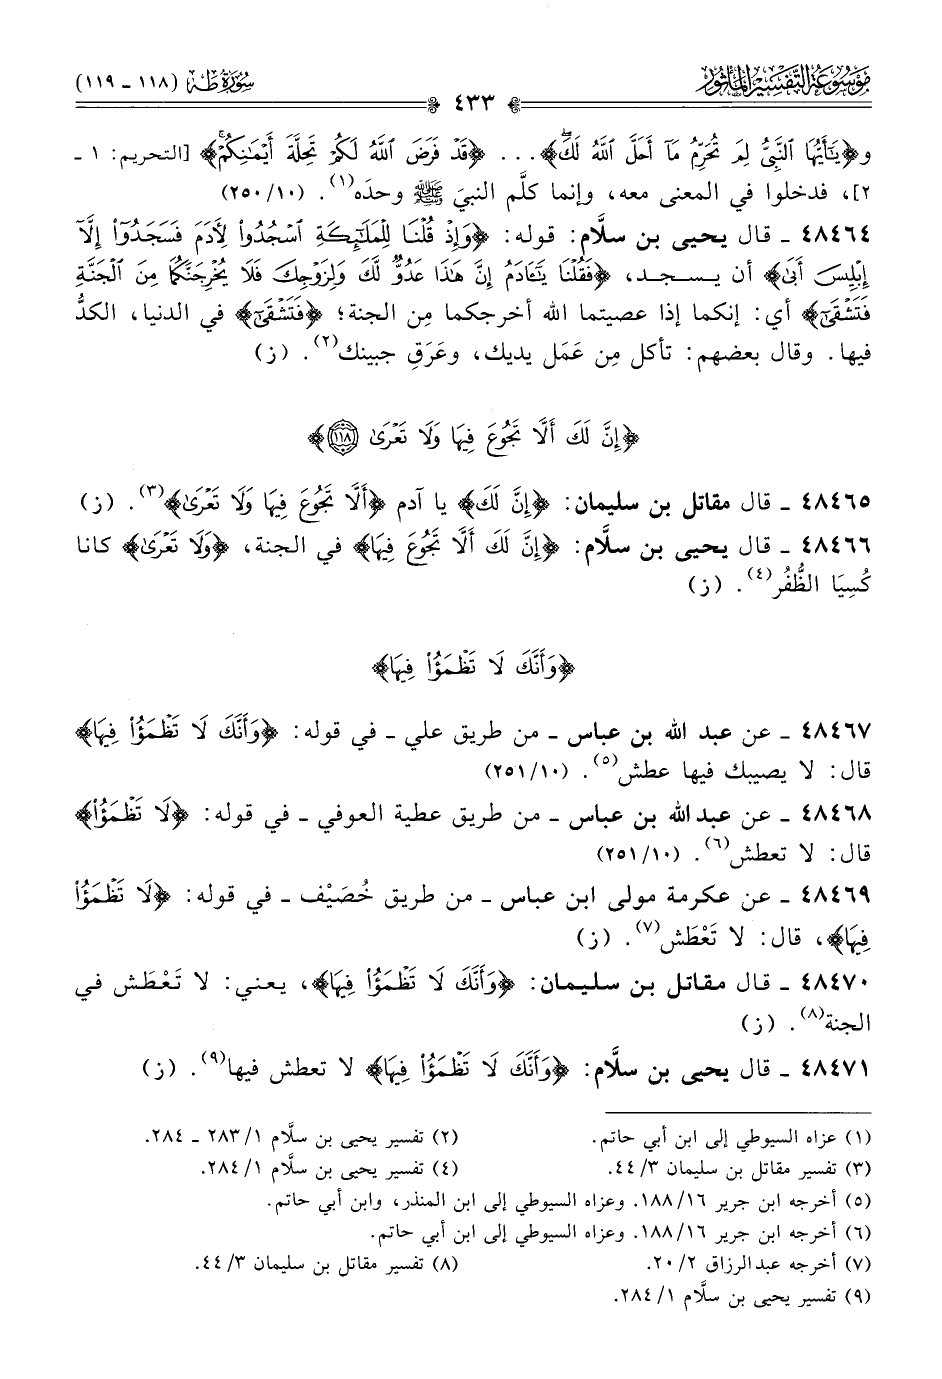 مَوْسُوعَة التَّفْسِير المَأثُور
سُورَة طه (١١٨ ـ ١١٩)
٤٣٣
و﴿يَٰٓأَيُّهَا ٱلنَّبِيُّ لِمَ تُحَرِّمُ مَآ أَحَلَّ ٱللَّهُ لَكَۖ﴾... ﴿قَدۡ فَرَضَ ٱللَّهُ لَكُمۡ تَحِلَّةَ أَيۡمَٰنِكُمۡۚ﴾ [التحريم: ١ ـ
٢]، فدخلوا في المعنى معه، وإنما كلَّم النبيَ ﷺ وحدَه(١). (١٠/٢٥٠)
٤٨٤٦٤ ـ قال يحيى بن سلَّام: قوله: ﴿وَإِذۡ قُلۡنَا لِلۡمَلَٰٓئِكَةِ ٱسۡجُدُواْ لِأٓدَمَ فَسَجَدُوٓاْ إِلَّآ
إِبۡلِيسَ أَبَىٰ﴾ أن يسجد، ﴿فَقُلۡنَا يَٰٓـَٔادَمُ إِنَّ هَٰذَا عَدُوّٞ لَّكَ وَلِزَوۡجِكَ فَلَا يُخۡرِجَنَّكُمَا مِنَ ٱلۡجَنَّةِ
فَتَشۡقَىٰٓ﴾ أي: إنكما إذا عصيتما الله أخرجكما مِن الجنة؛ ﴿فَتَشۡقَىٰٓ﴾ في الدنيا، الكدُّ
فيها. وقال بعضهم: تأكل مِن عَمَل يديك، وعَرَقِ جبينك(٢). (ز)
﴿إِنَّ لَكَ أَلَّا تَجُوعَ فِيهَا وَلَا تَعۡرَىٰ ١١٨﴾
٤٨٤٦٥ ـ قال مقاتل بن سليمان: ﴿إِنَّ لَكَ﴾ يا آدم ﴿أَلَّا تَجُوعَ فِيهَا وَلَا تَعۡرَىٰ﴾(٣). (ز)
٤٨٤٦٦ ـ قال يحيى بن سلَّام: ﴿إِنَّ لَكَ أَلَّا تَجُوعَ فِيهَا﴾ في الجنة، ﴿وَلَا تَعۡرَىٰ﴾ كانا
كُسِيَا الظُّفُر(٤). (ز)
﴿وَأَنَّكَ لَا تَظۡمَؤُاْ فِيهَا﴾
٤٨٤٦٧ ـ عن عبد الله بن عباس ـ من طريق علي ـ في قوله: ﴿وَأَنَّكَ لَا تَظۡمَؤُاْ فِيهَا﴾
قال: لا يصيبك فيها عطش(٥). (١٠/٢٥١)
٤٨٤٦٨ ـ عن عبد الله بن عباس ـ من طريق عطية العوفي ـ في قوله: ﴿لَا تَظۡمَؤُاْ﴾
قال: لا تعطش(٦). (١٠/٢٥١)
٤٨٤٦٩ ـ عن عكرمة مولى ابن عباس ـ من طريق خُصَيْف ـ في قوله: ﴿لَا تَظۡمَؤُاْ
فِيهَا﴾، قال: لا تَعْطَش(٧). (ز)
٤٨٤٧٠ ـ قال مقاتل بن سليمان: ﴿وَأَنَّكَ لَا تَظۡمَؤُاْ فِيهَا﴾، يعني: لا تَعْطَش في
الجنة(٨). (ز)
٤٨٤٧١ ـ قال يحيى بن سلَّام: ﴿وَأَنَّكَ لَا تَظۡمَؤُاْ فِيهَا﴾ لا تعطش فيها(٩). (ز)
(١) عزاه السيوطي إلى ابن أبي حاتم.
(٢) تفسير يحيى بن سلَّام ١/٢٨٣ ـ ٢٨٤.
(٣) تفسير مقاتل بن سليمان ٣/٤٤.
(٤) تفسير يحيى بن سلَّام ١/٢٨٤.
(٥) أخرجه ابن جرير ١٦/١٨٨. وعزاه السيوطي إلى ابن المنذر، وابن أبي حاتم.
(٦) أخرجه ابن جرير ١٦/١٨٨. وعزاه السيوطي إلى ابن أبي حاتم.
(٧) أخرجه عبد الرزاق ٢/٢٠.
(٨) تفسير مقاتل بن سليمان ٣/٤٤.
(٩) تفسير يحيى بن سلَّام ١/٢٨٤.